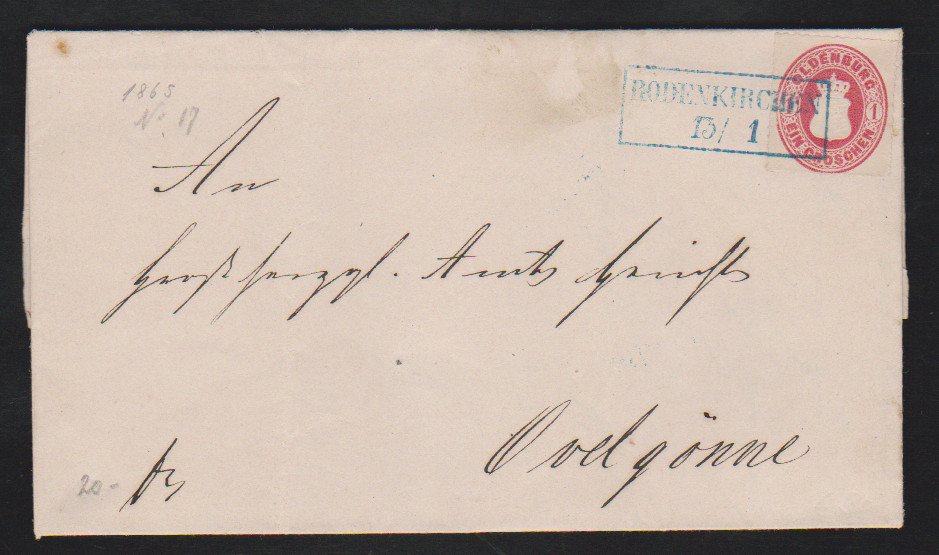 1865
No 17
RODENKIRCHEN
13/ 1
OLDENBURG
1
EIN GROSCHEN
An
Großherzgl. Amtsgericht
Ovelgönne
20-